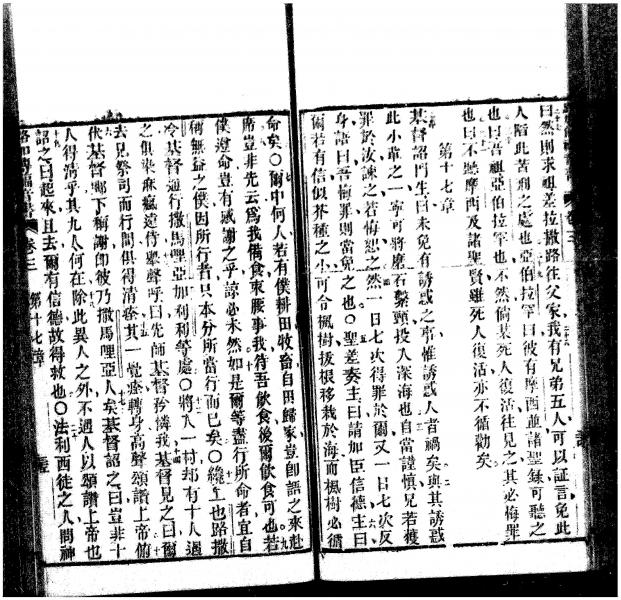 曰然則求祖差拉撒路往父家我有兄弟五人可以証言免此
人陷此苦刑之處也亞伯拉罕曰彼有摩西並諸聖錄可聽之
也曰吾祖亞伯拉罕也不然倘某死人復活往見之其必悔罪
也曰不聽摩西及諸聖賢雖死人復活亦不循勸矣
第十七章
基督詔門生曰未免有誘惑之事惟誘惑人者禍矣與其誘惑
此小輩之一寧可將磨石繫頸投入深海也自當謹慎兄若獲
罪於汝諫之若悔恕之然一日七次得罪於爾又一日七次反
身語曰吾悔罪則當免之也〇聖差奏主曰請加臣信德主曰
爾若有信似芥種之小可令楓樹拔根移栽於海而楓樹必循
命矣〇爾中何人若有僕耕田牧畜自田歸家豈卽語之來赴
席豈非先云爲我備食束腰事我待吾飲食後爾飲食可也若
僕遵命豈有感謝之乎諒必未然如是爾等盡行所命者宜自
稱無益之僕因所行者只本分所當行而已矣〇纔上也路撒
冷基督通行撒馬哩亞加利利等處〇將入一村却有十人遇
之俱染痳瘋遠侍擧聲呼曰先師基督矜憐我基督見之曰爾
去見祭司而行間俱得清痊其一覺痊轉身高聲頌讚上帝俯
伏基督鄉下稱謝卽彼乃撒馬哩亞人矣基督詔之曰豈非十
人得清乎其九人何在除此異人之外不遇人以頌讚上帝也
詔之曰起來且去爾有信德故得救也〇法利西徒之人問神
第十七章